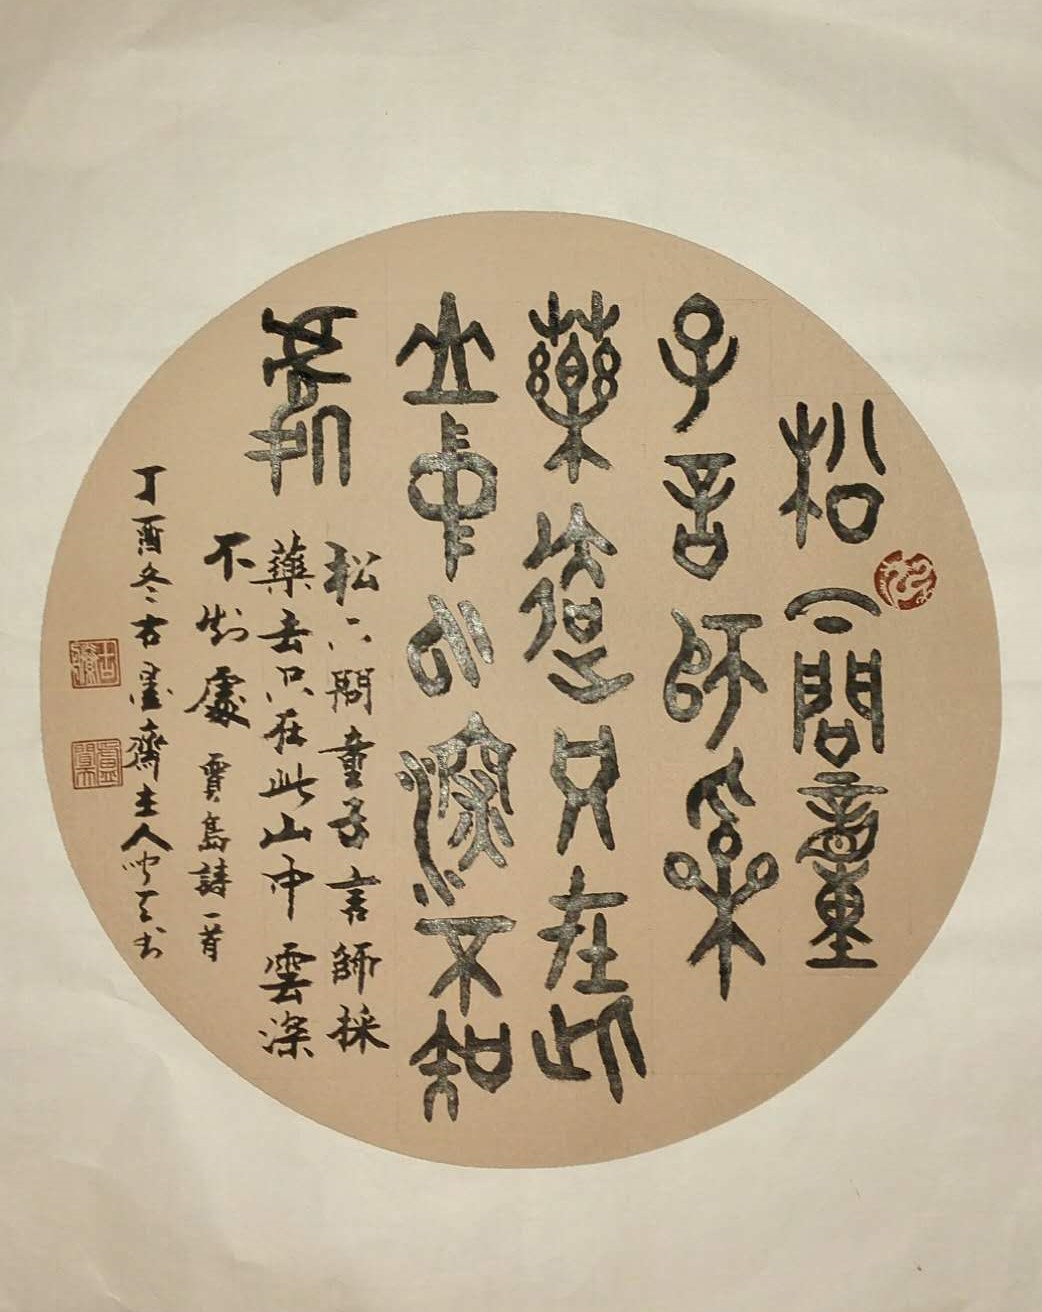 松下問童
子言師采
藥去只在此
山中云深不知
處
松下問童子言師採
藥去只在此山中雲深
不知處 賈島詩一首
丁酉冬古墨齋主人